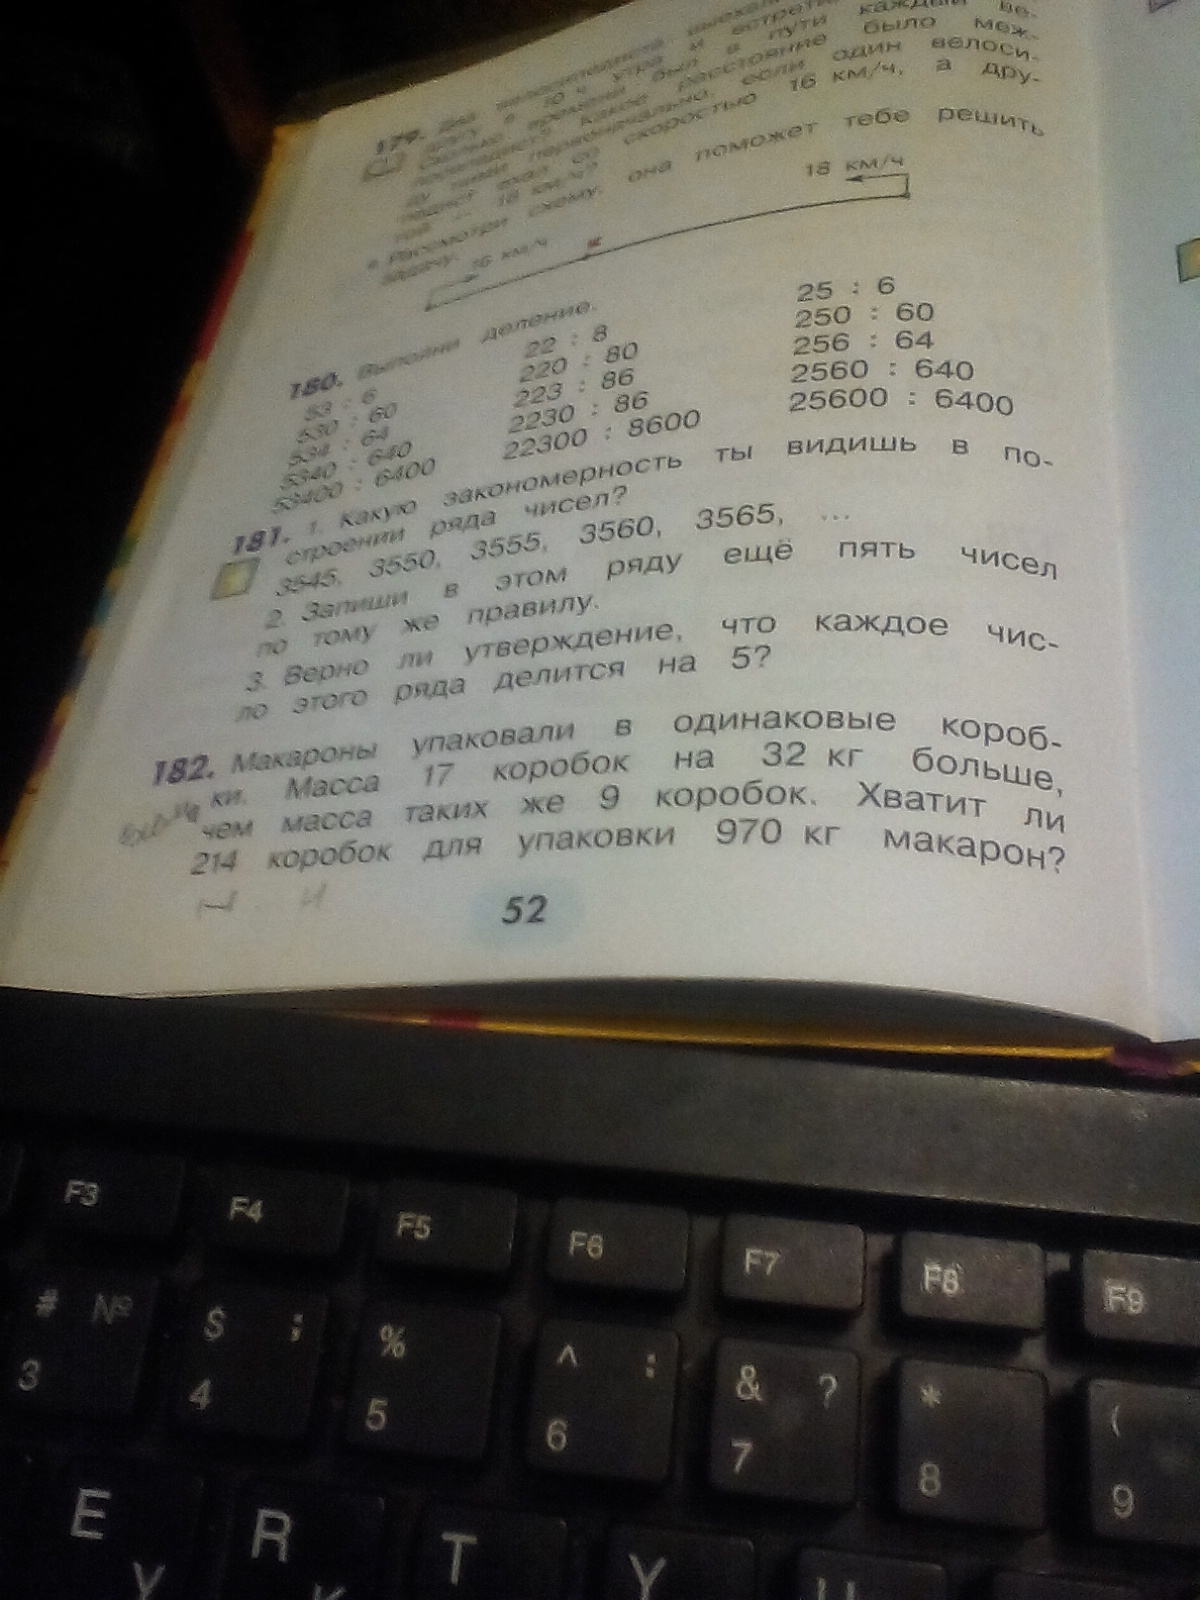 179. Два велосипедиста выехали
другу в 10 ч утра и встретились
Сколько времени был в пути каждый ве-
лосипедист? Какое расстояние было меж-
ду ними первоначально, если один велоси-
педист ехал со скоростью 16 км/ч, а дру-
гой — 18 км/ч?
• Рассмотри схему, она поможет тебе решить
задачу.
16 км/ч
18 км/ч
180. Выполни деление.
53 : 6 22 : 8 25 : 6
530 : 60 220 : 80 250 : 60
534 : 64 223 : 86 256 : 64
5340 : 640 2230 : 86 2560 : 640
53400 : 6400 22300 : 8600 25600 : 6400
181. 1. Какую закономерность ты видишь в по-
строении ряда чисел?
3545, 3550, 3555, 3560, 3565, ...
2. Запиши в этом ряду ещё пять чисел
по тому же правилу.
3. Верно ли утверждение, что каждое чис-
ло этого ряда делится на 5?
182. Макароны упаковали в одинаковые короб-
ки. Масса 17 коробок на 32 кг больше,
чем масса таких же 9 коробок. Хватит ли
214 коробок для упаковки 970 кг макарон?
52
F3 F4 F5 F6 F7 F8 F9
# № $ ; % ^ : & ? * (
3 4 5 6 7 8 9
E R T Y
У К